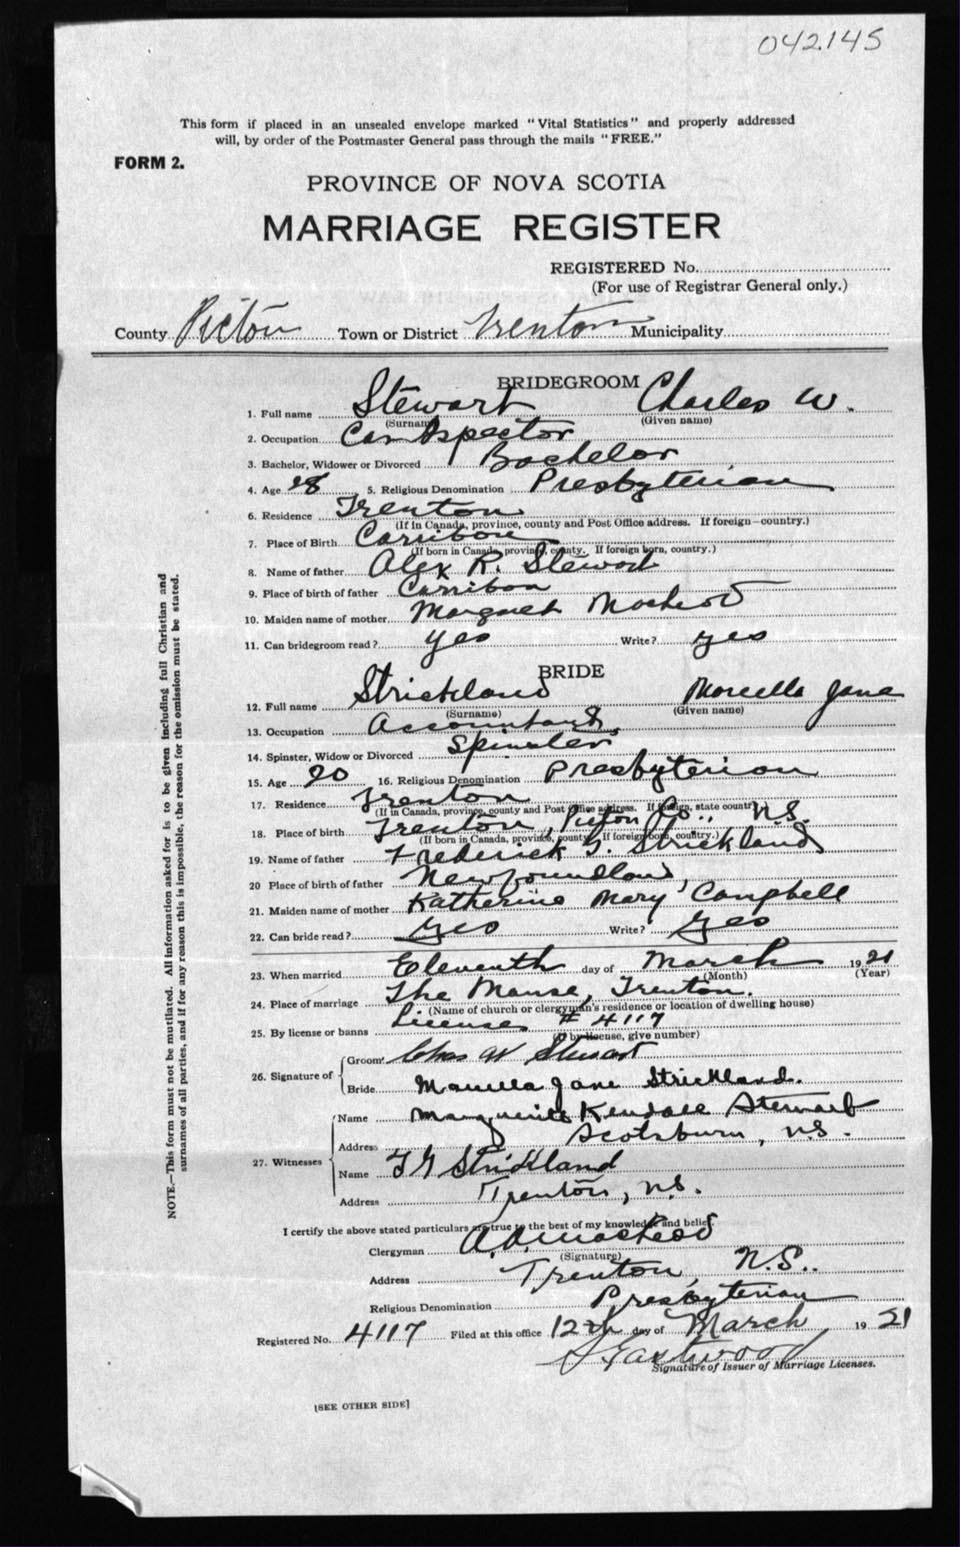 042145
This form if placed in an unsealed envelope marked "Vital Statistics" and properly addressed
will, by order of the Postmaster General pass through the mails "FREE."
FORM 2.
PROVINCE OF NOVA SCOTIA
MARRIAGE REGISTER
REGISTERED No.
(For use of Registrar General only.)
County Pictou Town or District Trenton Municipality
BRIDEGROOM
1. Full name Stewart Charles W.
(Surname) (Given name)
2. Occupation Car Aspector
3. Bachelor, Widower or Divorced Bachelor
4. Age 28 5. Religious Denomination Presbyterian
6. Residence Trenton
(If in Canada, province, county and Post Office address. If foreign—country.)
7. Place of Birth Carribou
(If born in Canada, province, county. If foreign born, country.)
8. Name of father Alex R. Stewart
9. Place of birth of father Carribou
10. Maiden name of mother Margaret MacLeod
11. Can bridegroom read? yes Write? yes
BRIDE
12. Full name Strickland Marcella Jane
(Surname) (Given name)
13. Occupation Accountant
14. Spinster, Widow or Divorced Spinster
15. Age 20 16. Religious Denomination Presbyterian
17. Residence Trenton
(If in Canada, province, county and Post Office address. If foreign, state country.)
18. Place of birth Trenton, Pictou Co., N.S.
(If born in Canada, province, county. If foreign born, country.)
19. Name of father Frederick G. Strickland
20 Place of birth of father Newfoundland,
21. Maiden name of mother Katherine Mary Campbell
22. Can bride read? Yes Write? Yes
23. When married Eleventh day of March 1921
(Month) (Year)
24. Place of marriage The Manse, Trenton.
(Name of church or clergyman's residence or location of dwelling house)
25. By license or banns License # 4117
(If by license, give number)
26. Signature of Groom Chas W Stewart
Bride Marcella Jane Strickland.
27. Witnesses Name Marguerite Kendall Stewart
Address Scotsburn, N.S.
Name F G Strickland
Address Trenton, N.S.
I certify the above stated particulars are true to the best of my knowledge and belief.
Clergyman A.D. MacLeod
(Signature)
Address Trenton, N.S..
Religious Denomination Presbyterian
Registered No. 4117 Filed at this office 12th day of March, 1921
Eastwood
Signature of Issuer of Marriage Licenses.
[SEE OTHER SIDE]
NOTE.—This form must not be mutilated. All information asked for is to be given including full Christian and
surnames of all parties, and if for any reason this is impossible, the reason for the omission must be stated.